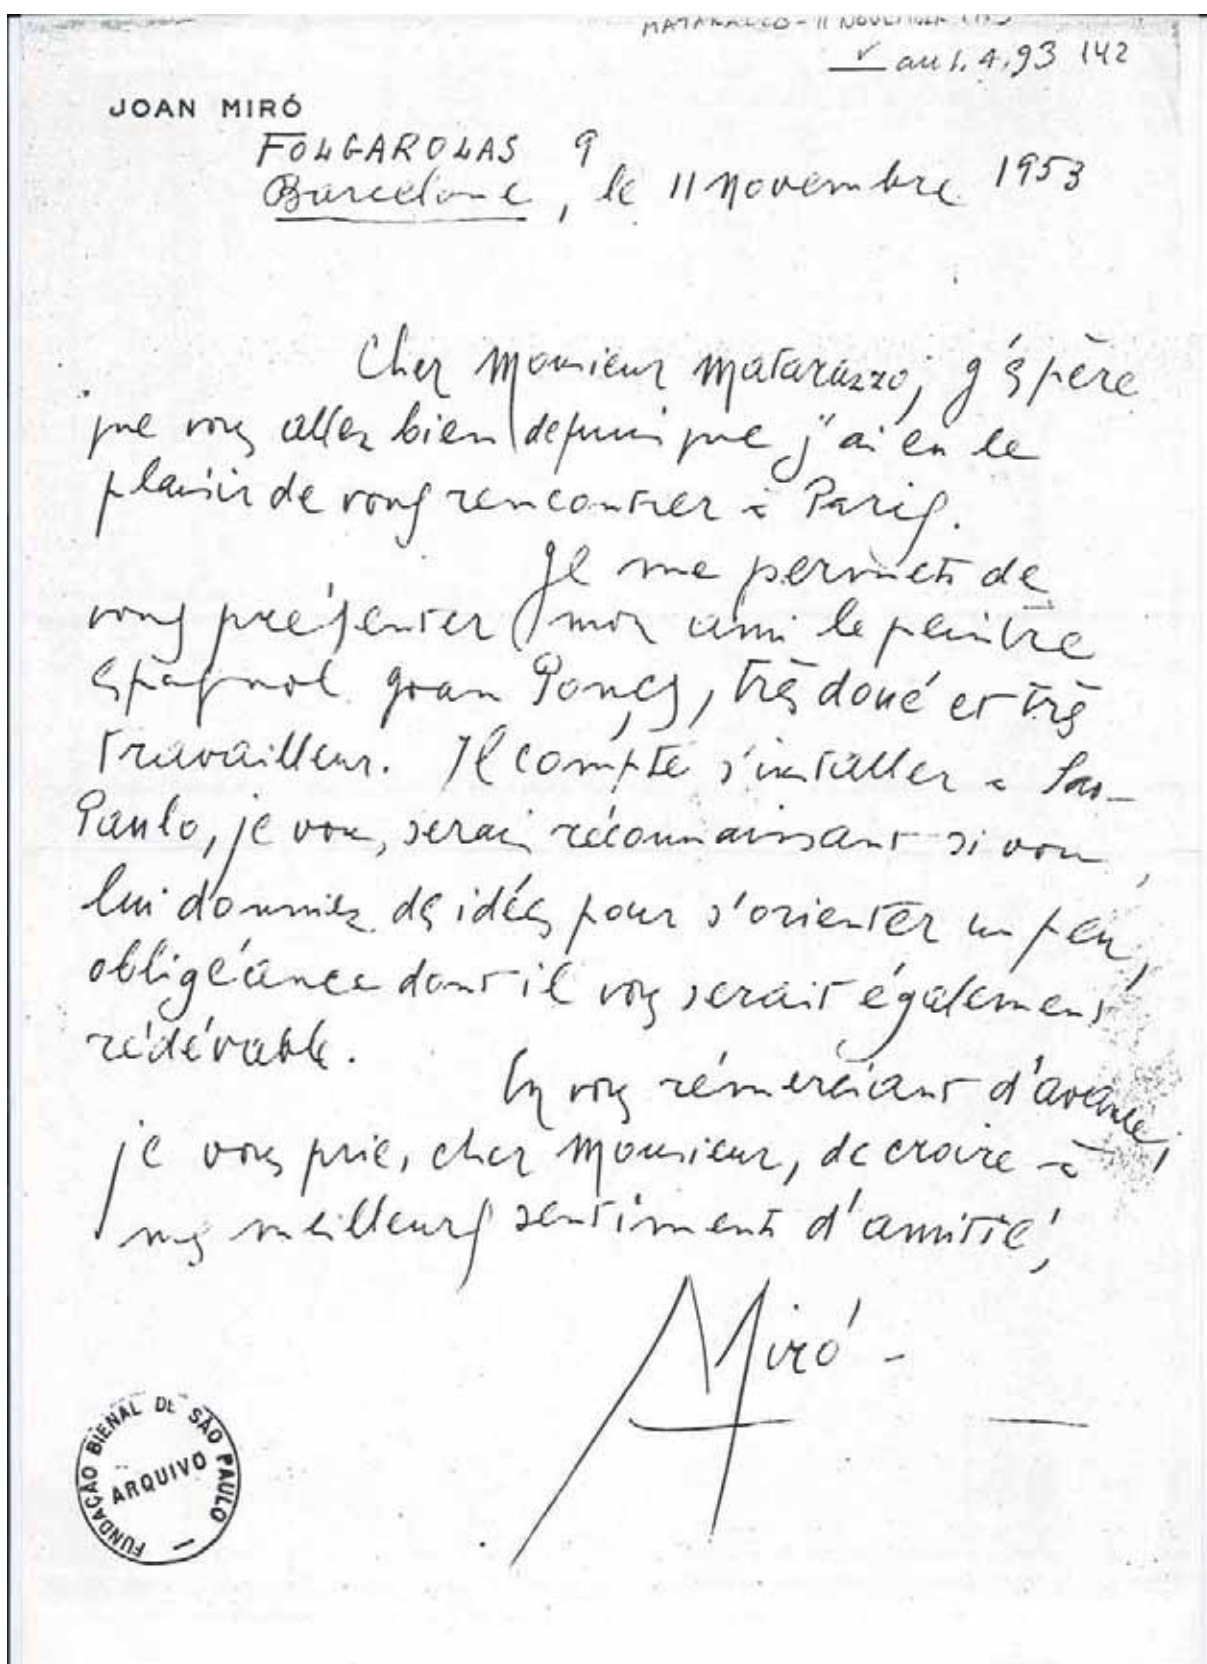 MATARAZZO - 11 NOVEMBER
au 1.4.93 142
JOAN MIRÓ
FOLGAROLAS 9
Barcelone, le 11 Novembre 1953
Cher Monsieur Matarazzo, j'éspère
que vous allez bien depuis que j'ai eu le
plaisir de vous rencontrer à Paris.
Je me permets de
vous présenter mon ami le peintre
espagnol Joan Ponç, très doué et très
travailleur. Il compte s'installer à Sao-
Paulo, je vous serais réconnaissant si vous
lui donniez des idées pour s'orienter un peu,
obligéance dont il vous serait également
rédévable.
En vous rémerciant d'avance,
je vous prie, cher Monsieur, de croire à
mes meilleurs sentiments d'amitié,
Miró -
FUNDAÇÃO BIENAL DE SÃO PAULO -
ARQUIVO